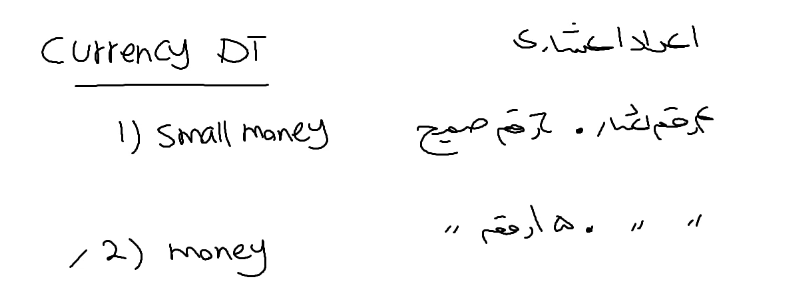 Currency DT اعداد اعشاری
1) Small money ۴رقم اعشار . ۶رقم صحیح
2) money " " . ۱۵رقم "